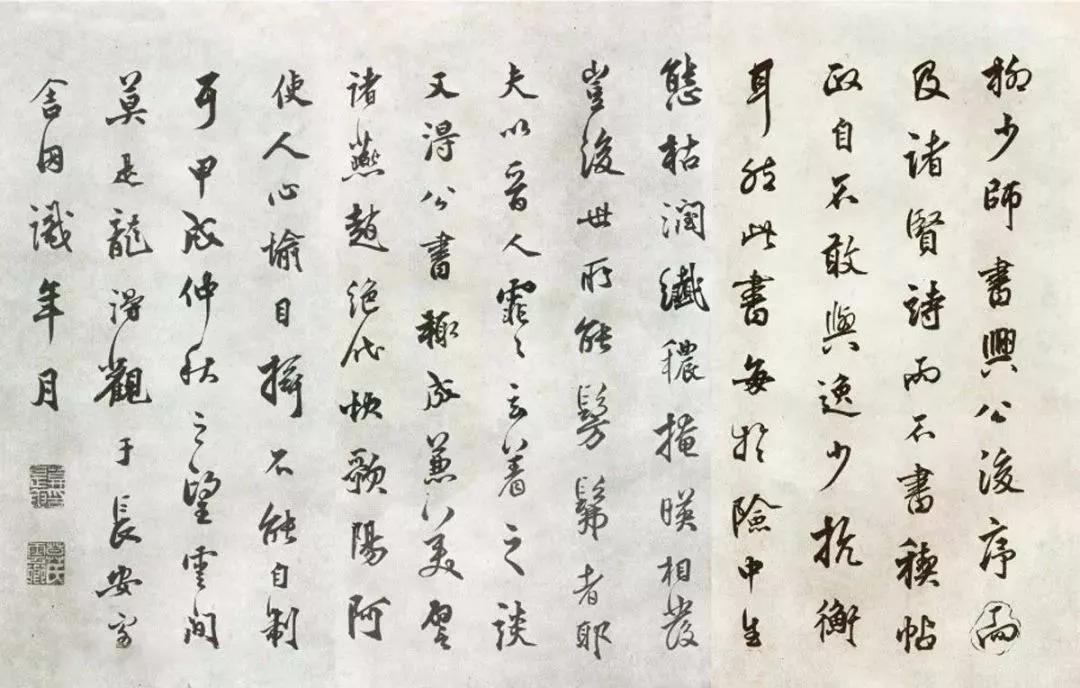 柳少師書興公後序
及諸賢詩而不書禊帖
政自不敢與逸少抗衡
耳然此書每於險中生
態枯潤纖穠掩暎相發
豈後世所能髣髴者耶
夫以晉人霏〻玄著之談
又得公書輙成兼美譬
諸燕趙絕代快歌陽阿
使人心愉目搖不能自制
耳甲戌仲秋之望雲間
莫是龍得觀于長安客
舍因識年月